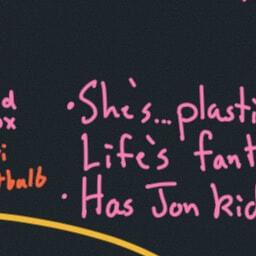 d
ox
i
tbulb
•She's...plasti
Life's fant
•Has Jon kid